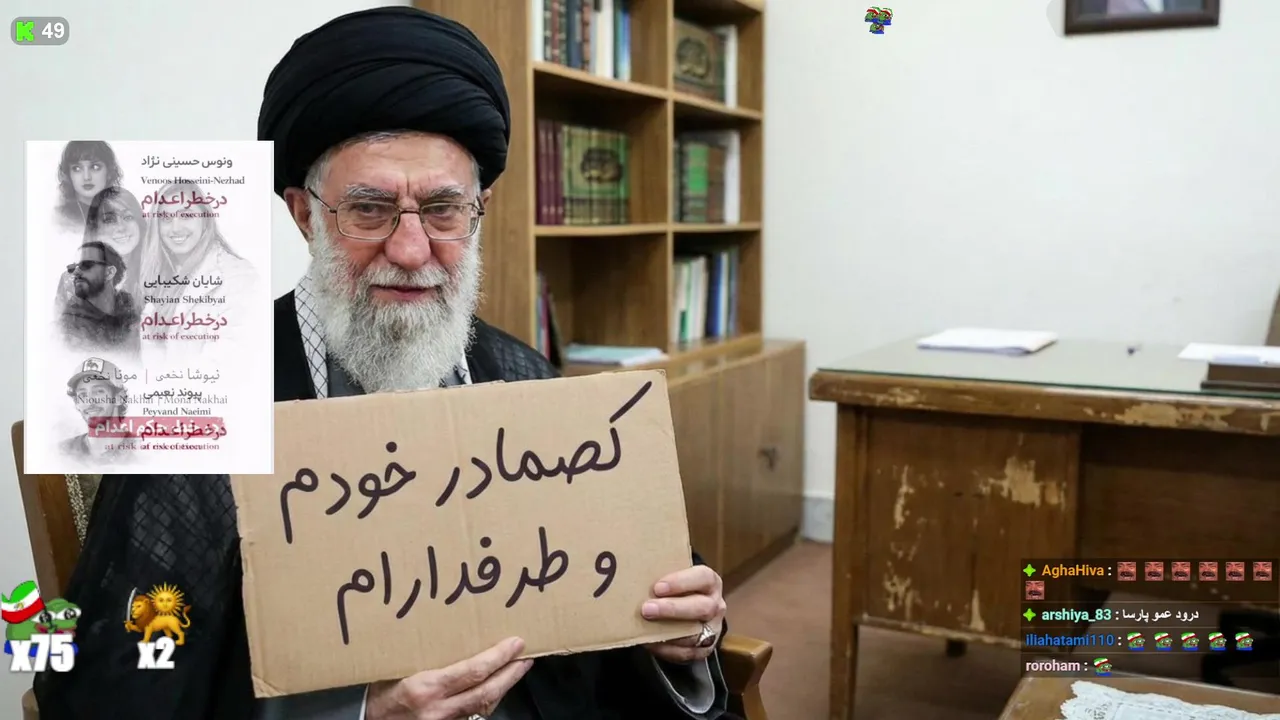 49
ونوس حسینی نژاد
Venoos Hosseini-Nezhad
درخطراعدام
at risk of execution
شایان شکیبایی
Shayian Shekibyai
درخطراعدام
at risk of execution
نیوشا نخعی | مونا نخعی
پیوند نعیمی
Niousha Nakhai | Mona Nakhai
Peyvand Naeimi
درخطراعدام
at risk of execution
کصمادر خودم
و طرفدارام
x75
x2
AghaHiva :
arshiya_83 : درود عمو پارسا
iliahatami110 :
roroham :